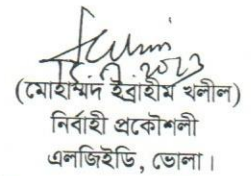 (মোহাম্মদ ইব্রাহীম খলীল)
নির্বাহী প্রকৌশলী
এলজিইডি, ভোলা।